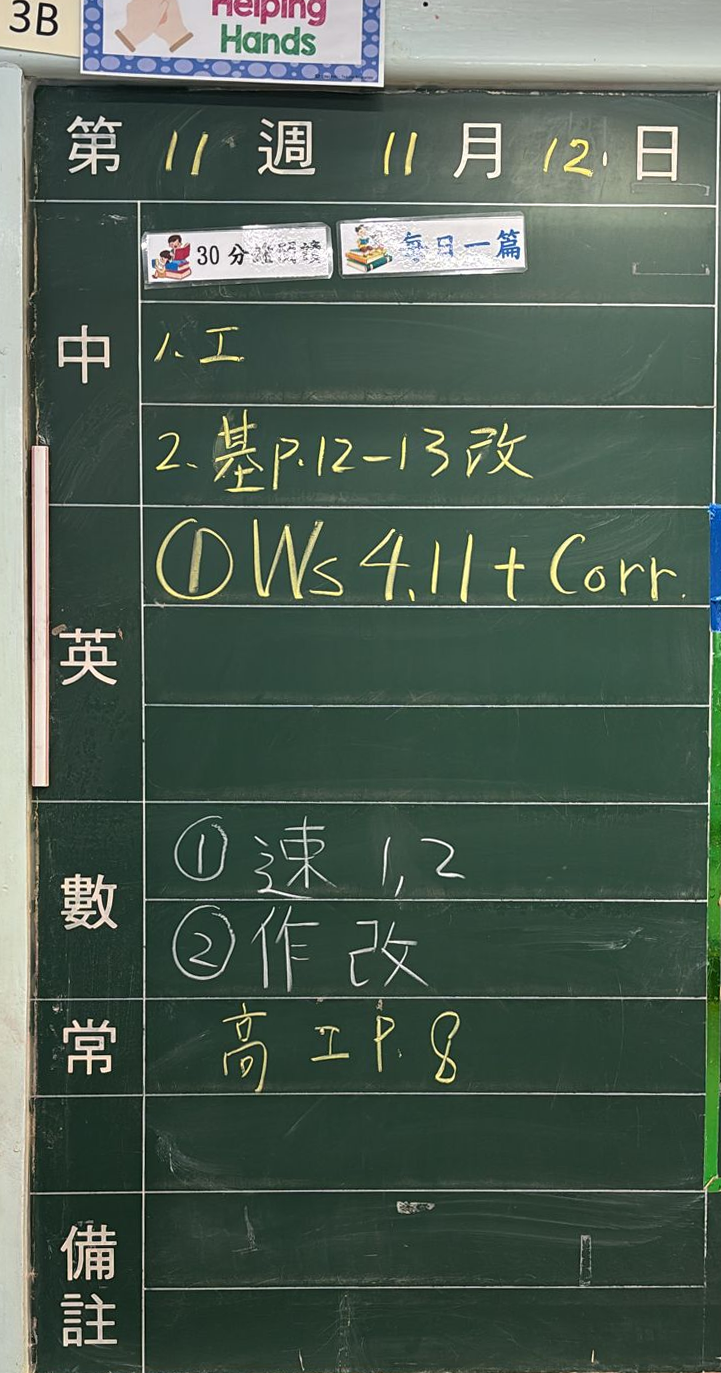 3B
Helping
Hands
第 11 週 11 月 12 日
30 分鐘閱讀 每日一篇
中
1. 工
2. 基P.12-13改
英
① Ws 4.11 + Corr.
數
① 速 1,2
② 作 改
常
高 工 P. 8
備註